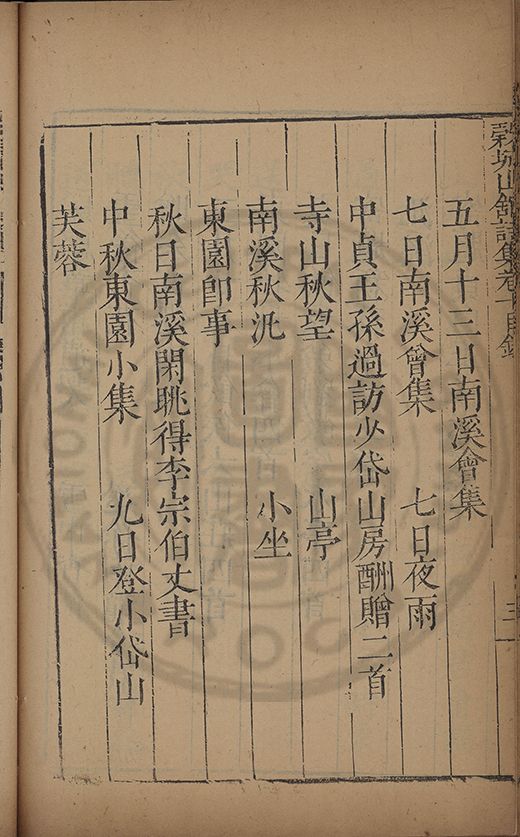 穀城山館詩集卷十目錄
三
五月十三日南溪會集
七日南溪會集　七日夜雨
中貞王孫過訪少岱山房酬贈二首
寺山秋望　山亭
南溪秋汎　小坐
東園卽事
秋日南溪閑眺得李宗伯丈書
中秋東園小集　九日登小岱山
芙蓉